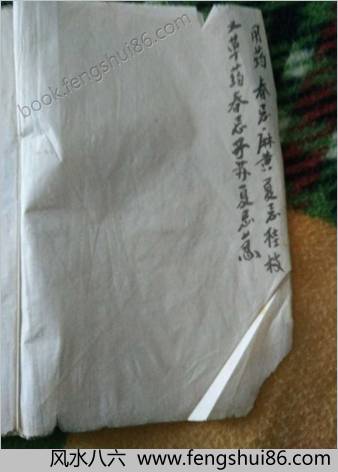 用药春忌麻黄夏忌桂枝
草药春忌子苏夏忌
book.fengshui86.com
风水八六 www.fengshui86.com